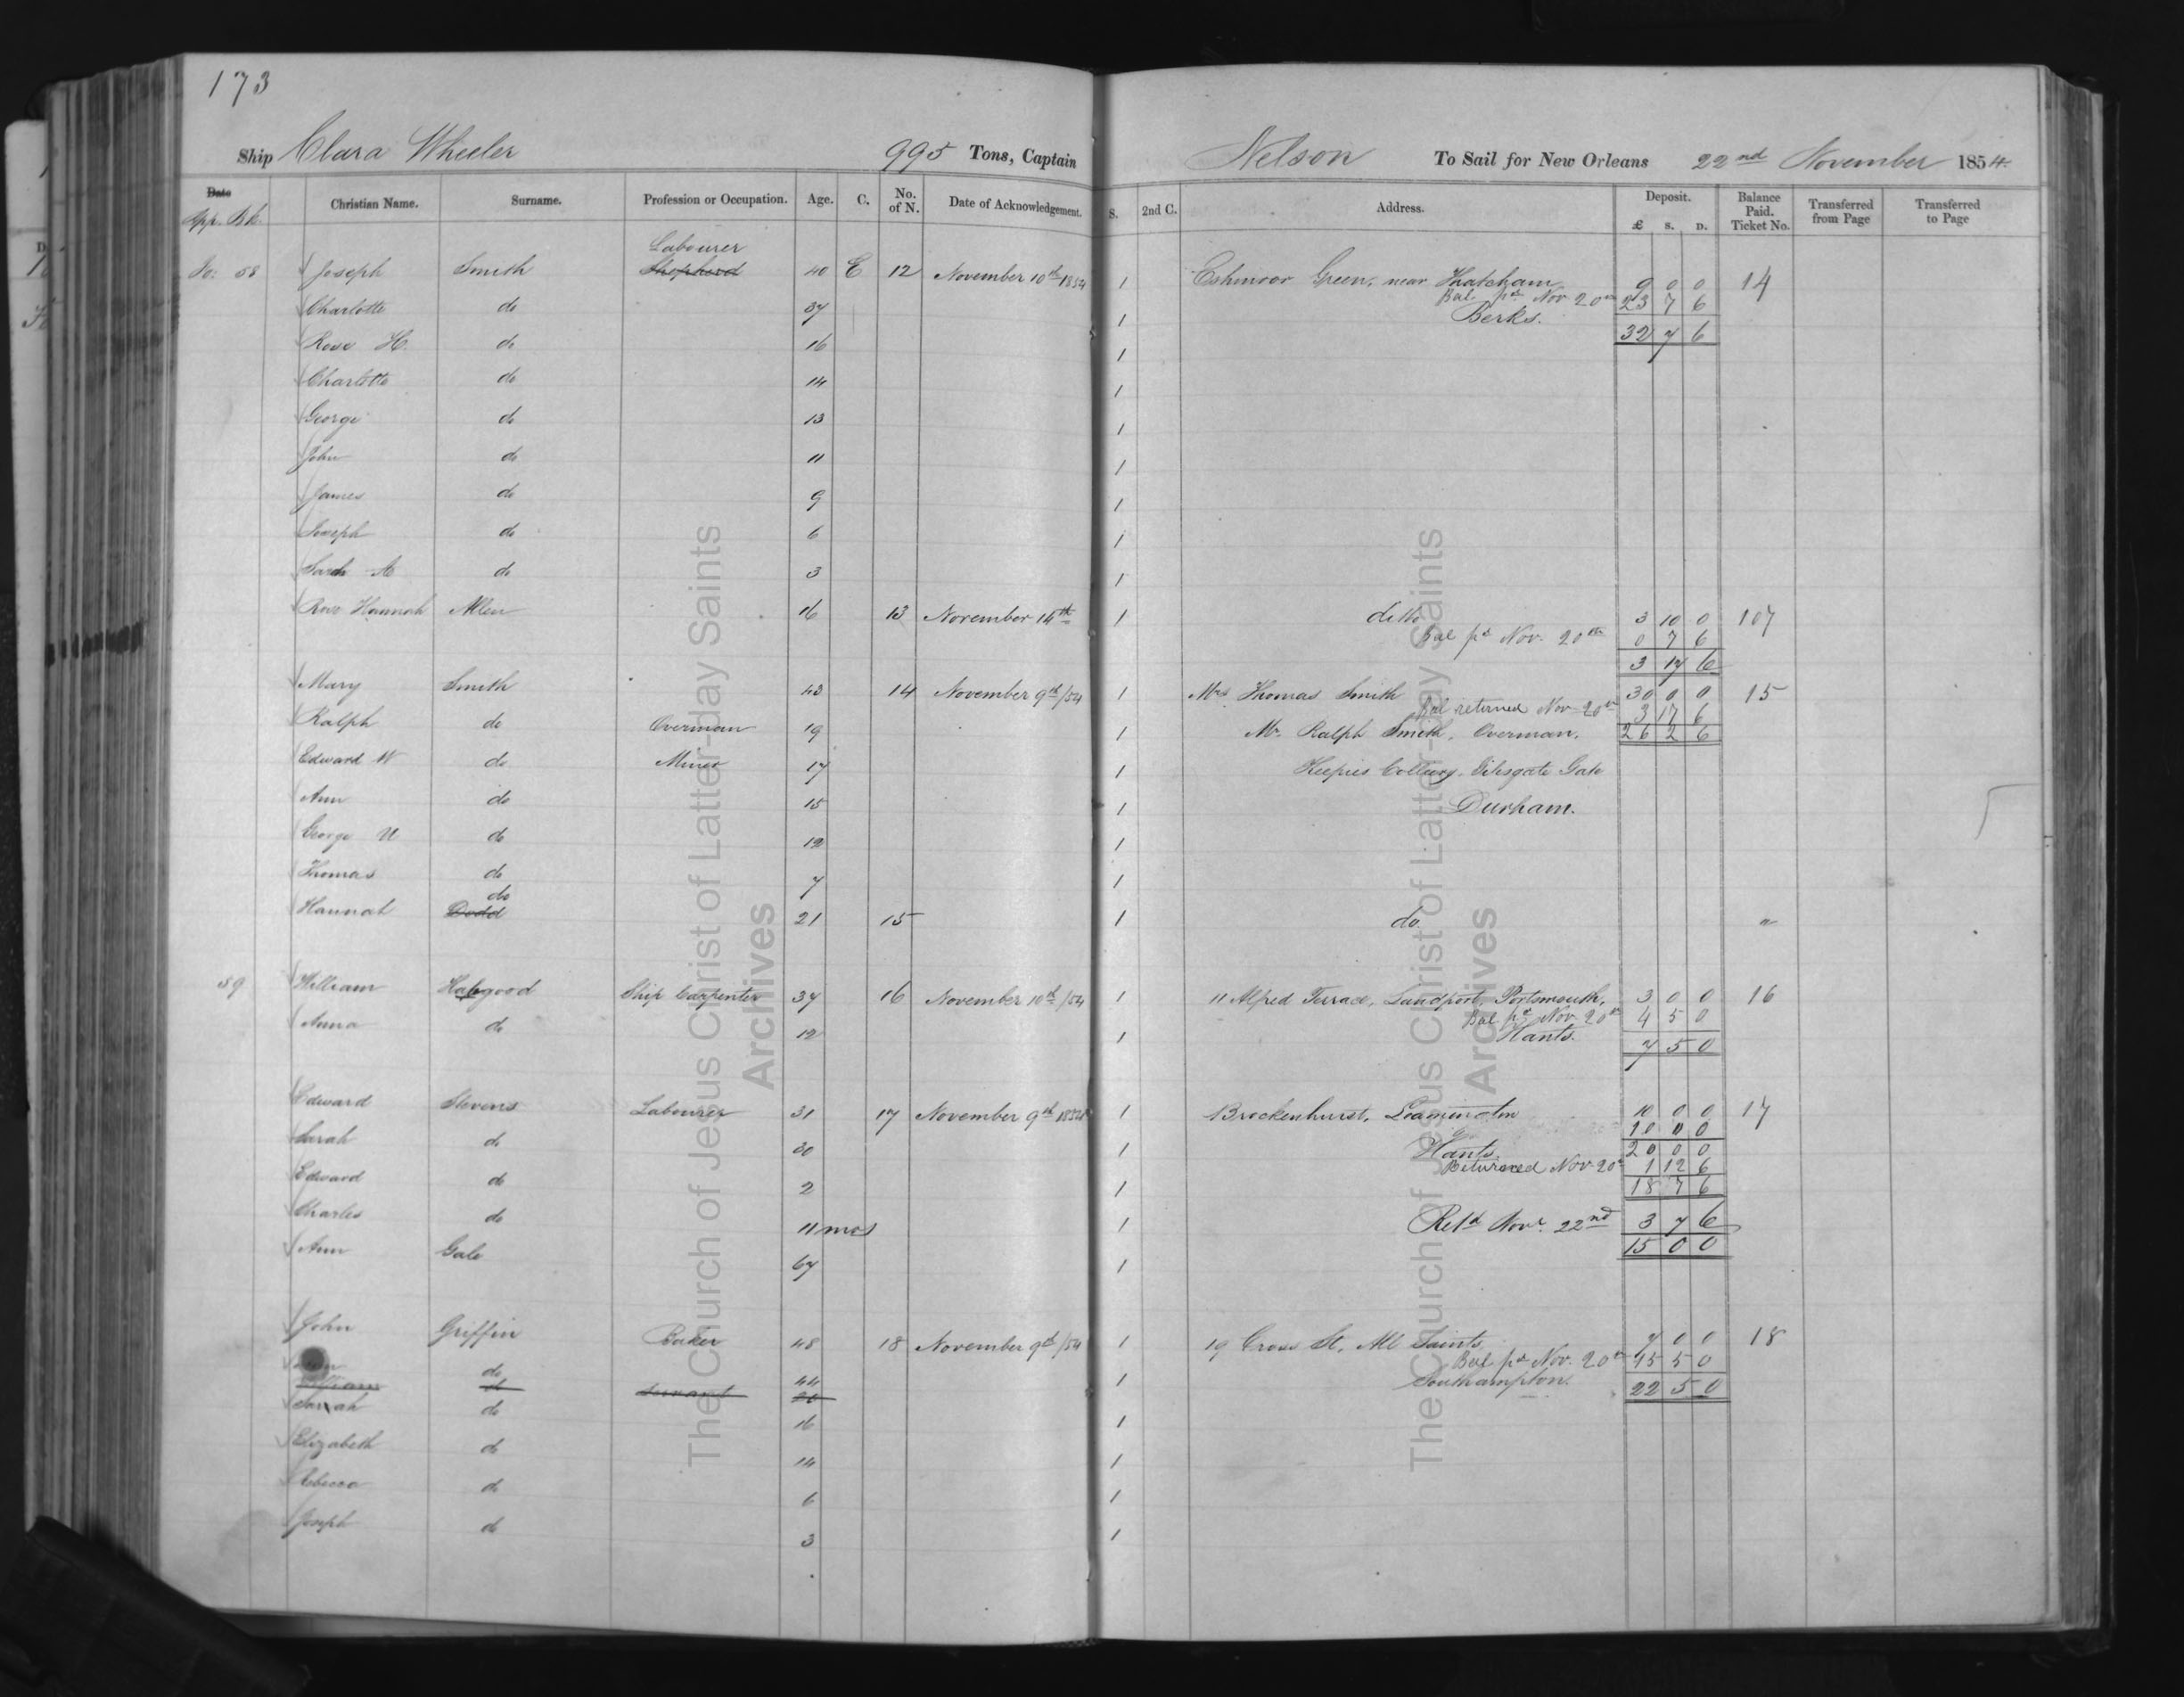 173
Ship Clara Wheeler 995 Tons, Captain Nelson To Sail for New Orleans 22nd November 1854.
Date Christian Name. Surname. Profession or Occupation. Age. C. No. of N. Date of Acknowledgement. S. 2nd C. Address. Deposit. £ S. D. Balance Paid. Ticket No. Transferred from Page Transferred to Page
App. Bk.
Labourer
Fo: 58 Joseph Smith Shepherd 40 E 12 November 10th 1854 1 Green, near Thatcham 9 0 0 14
Bal. pd Nov 20th 23 7 6
Charlotte do 37 1 Berks.
32 7 6
Rose H. do 16 1
Charlotte do 14 1
George do 13 1
John do 11 1
James do 9 1
Joseph do 6 1
Sarah A do 3 1
Rose Hannah Allen 16 13 November 14th 1 ditto 3 10 0 107
Bal pd Nov. 20th 0 7 6
3 17 6
Mary Smith 43 14 November 9th/54 1 Mrs. Thomas Smith 30 0 0 15
Bal returned Nov 20th 3 17 6
Ralph do Overman 19 1 Mr. Ralph Smith, Overman. 26 2 6
Edward W do Miner 17 1 Kepier Colliery, Gilesgate Gate
Ann do 15 1 Durham.
George U do 12 1
Thomas do 7 1
do
Hannah Dodd 21 15 1 do. "
59 William Habgood Ship Carpenter 37 16 November 10th/54 1 11 Alfred Terrace, Landport, Portsmouth, 3 0 0 16
Bal. pd Nov. 20th 4 5 0
Anna do 12 1 Hants.
7 5 0
Edward Stevens Labourer 31 17 November 9th 1854 1 Brockenhurst, Leamington 10 0 0 17
10 0 0
Sarah do 30 1 Hants. 20 0 0
Returned Nov 20th 1 12 6
Edward do 2 1 18 7 6
Charles do 11 mos 1 Retd Novr. 22nd 3 7 6
15 0 0
Ann Gale 67 1
John Griffin Baker 48 18 November 9th/54 1 19 Cross St, All Saints, 7 0 0 18
Bal pd Nov. 20th 15 5 0
do 44 1 Southampton. 22 5 0
William do Servant 20
Sarah do 16 1
Elizabeth do 14 1
Rebecca do 6 1
Joseph do 3 1
The Church of Jesus Christ of Latter-day Saints
Archives
The Church of Jesus Christ of Latter-day Saints
Archives